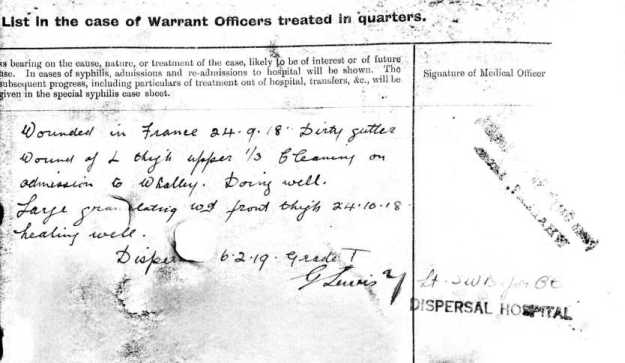 List in the case of Warrant Officers treated in quarters.
s bearing on the cause, nature, or treatment of the case, likely to be of interest or of future
use. In cases of syphilis, admissions and re-admissions to hospital will be shown. The
subsequent progress, including particulars of treatment out of hospital, transfers, &c., will be
given in the special syphilis case sheet.
Signature of Medical Officer
Wounded in France 24-9-18 Dirty gutter
wound of L thigh upper 1/3 Cleaning on
admission to Whalley. Doing well.
Large granulating wd front thigh 24-10-18
healing well.
6-2-19. Grade I
G Lewis
Lt
DISPERSAL HOSPITAL